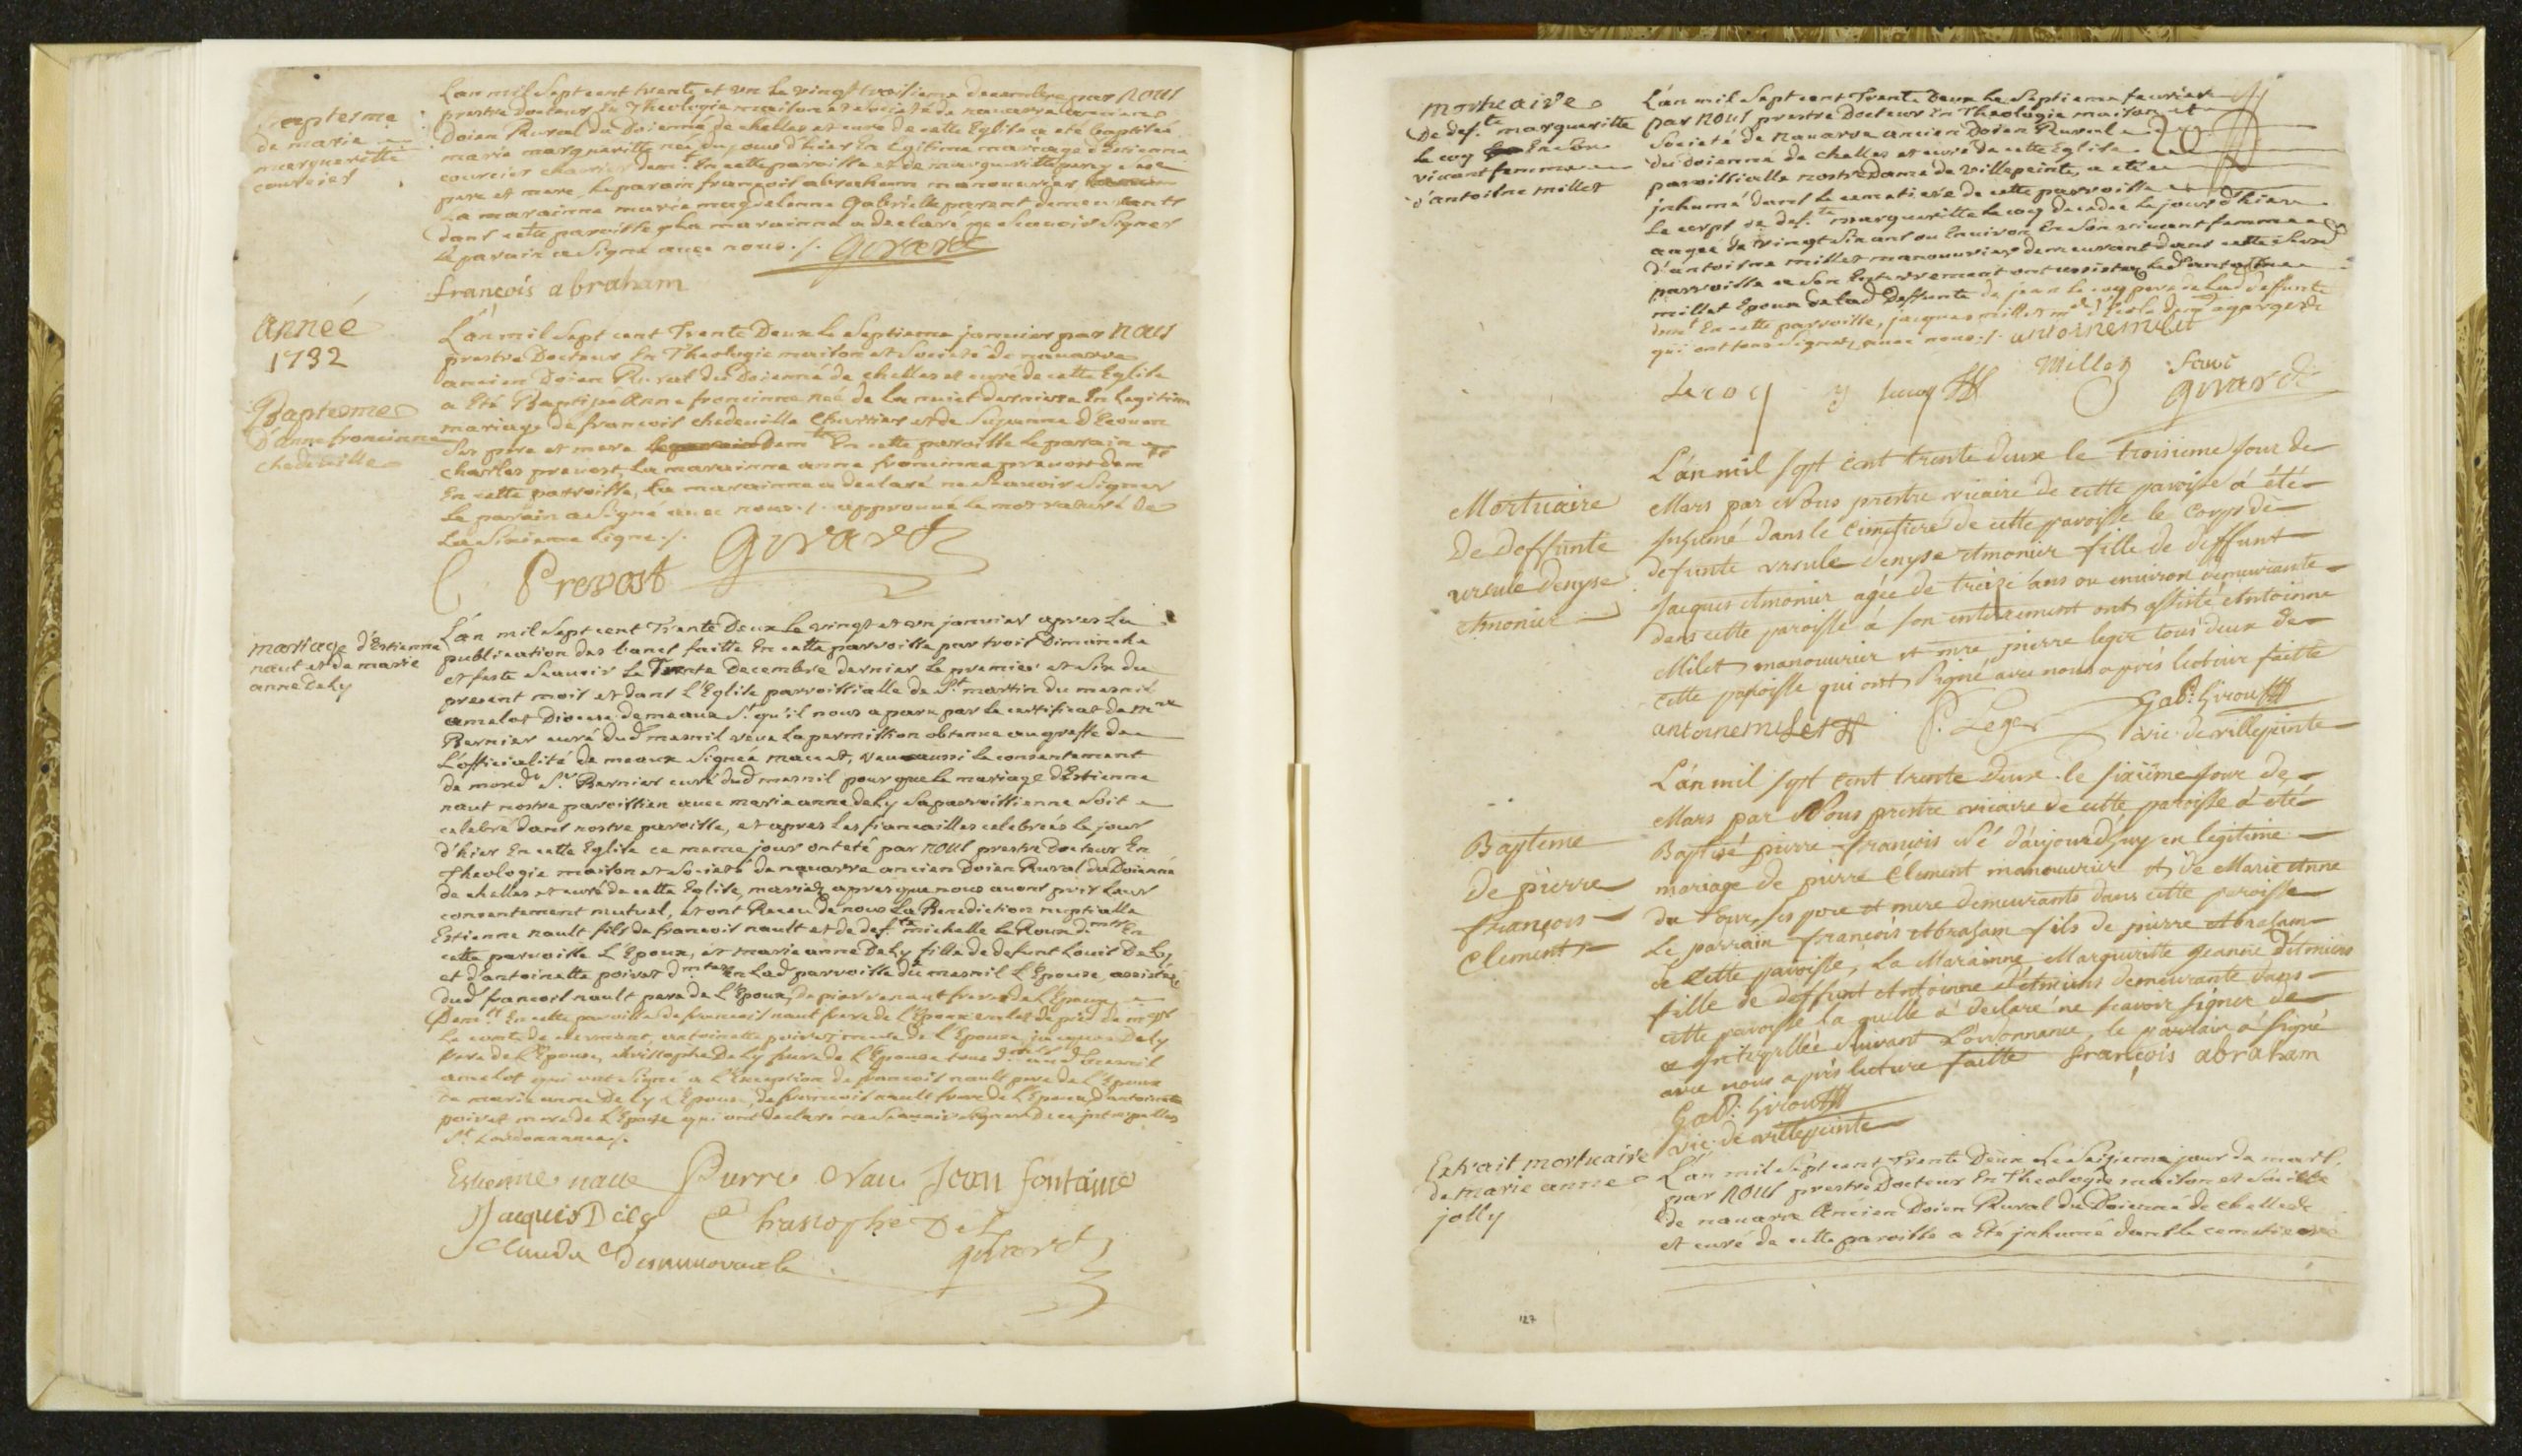 Baptesme
de marie
margueritte
courcier
L'an mil sept cent trente et un le vingt troisieme decembre par nous
prestre docteur En Theologie maison et societé de navarre ancien
Doien Rural du Doienné de chelles et curé de cette Eglise a eté baptisée
marie margueritte née du jour d'hier En legitime mariage d'Estienne
courcier charier demt. En cette paroisse et de margueritte ses
pere et mere, le parain françois abraham manouvrier
La marainne marie magdelenne Gabrielle parent demeurants
dans cette paroisse, La marainne a declaré ne scavoir signer
le parain a signé avec nous ./. Girard
françois abraham
Année
1732
Baptesme
D'anne francinne
chedeville
L'an mil sept cent Trente Deux le septieme janvier par nous
prestre Docteur En Theologie maison et societé de navarre
ancien Doien Rural du Doienné de chelles et curé de cette Eglise
a Eté Baptisée Anne francinne née de la nuict derniere En legitime
mariage de francois chedeville Charier et de Susanne
ses pere et mere demts En cette paroisse le parain
charles prevost, La marainne anne francinne prevost demts
En cette paroisse, La marainne a declaré ne scavoir signer
le parain a signé avec nous ./. approuvé le mot raturé de
La sixieme ligne ./. Girard
C Prevost
mariage d'Estienne
naut et de marie
anne Dely
L'an mil sept cent Trente Deux le vingt et un janvier apres La
publication des bancs faitte En cette paroisse par trois Dimanche
et feste scavoir le Trente Decembre dernier le premier et six du
present mois et dans L'Eglise paroissialle de St martin du mesnil
amelot Diocese de meaux st. qu'il nous a paru par le certificat de mre
Bernier curé dud mesnil veue La permission obtenue au greffe de
L'officialité de meaux signée macet, veu aussi le consentement
de mond. Sr. Bernier curé dud mesnil pour que le mariage d'Estienne
naut nostre paroissien avec marie anne dely sa paroissienne soit
celebré dans nostre paroisse, et apres les fiançailles celebrées le jour
d'hier En cette Eglise ce meme jour ont eté par nous prestre Docteur En
Theologie maison et societé de navarre ancien Doien Rural du Doienné
de chelles et curé de cette Eglise, mariés apres que nous avons pris leur
consentement mutuel, et ont Receu de nous La Benediction nuptialle
Estienne nault fils de francois nault et de defte michelle le Roux dmts En
cette paroisse L'Epoux, et marie anne Dely fille de defunt Louis Dely
et d'antoinette poiret dmtes en Lad parroisse du mesnil L'Epouse, assistés
dud francois nault pere de L'Epoux, de pierre naut frere de L'Epoux
Demt En cette paroisse de francois naut frere de L'Epoux valet de pied de mgr
Le comte de clermont, antoinette poiret mere de L'Epouse, jacques Dely
frere de L'Epouse, christophe Dely frere de L'Epouse tous dmts aud mesnil
amelot qui ont signé a L'Exception de francois nault pere de L'Epoux
de marie anne Dely L'Epouse, de francois nault frere de L'Epoux, d'antoinette
poiret mere de L'Epouse qui ont declaré ne scavoir signer de ce interpellés
st. L'ordonnance ./.
Estienne naut Pierre Nau Jean fontaine
Jacques Dely Christophe Dely
Claude Girard
mortuaire
De defte. margueritte
le coq En son
vivant femme
d'antoisne millet
L'an mil sept cent Trente Deux le septieme fevrier
par nous prestre Docteur En Theologie maison et
Societé de navarre ancien Doien Rural
du Doienné de chelles et curé de cette Eglise
paroissialle nostre Dame de villepeinte, a eté
inhumé dans le cemetiere de cette parroisse
le corps de defte. margueritte le coq decedée le jour d'hier
aagée de vingt six ans ou Environ En son vivant femme
d'antoisne millet manouvrier demeurant dans cette
parroisse a son Enterrement ont assistez led antoisne
millet Epoux de lad Deffunte de jean le coq pere de lad defunte
demt En cette parroisse, jacques millet me d'Ecole demt a gargesde
qui ont tous signez avec nous ./. antoinemilet
Lecoq Millet
Girard
Mortuaire
De deffunte
ursule denyse
Amonier
L'an mil sept cent trente deux le troisieme jour de
Mars par Nous prestre vicaire de cette paroisse a été
Inhumé dans le cimetiere de cette paroisse le corps de
defunte ursule denyse Amonier fille de deffunt
Jacques Amonier agée de treize ans ou environ demeurante
dans cette paroisse a son enterrement ont assisté Antoinne
Milet manouvrier et mre pierre leger tous deux de
cette paroisse qui ont signé avec nous après lecture faitte
antoinemilet P. Leger Gab: Giroust
vic. de villepeinte
Bapteme
De pierre
françois
Clement
L'an mil sept cent trente Deux le sixiême jour de
Mars par Nous prestre vicaire de cette paroisse a été
Baptisé pierre françois Né d'aujourd'huy en legitime
mariage de pierre Clement manouvrier et de Marie Anne
du four, ses pere et mere demeurants dans cette paroisse
Le parrain françois Abraham fils de pierre Abraham
de cette paroisse, La Marainne Margueritte Jeanne d'Amiens
fille de deffunt Antoinne d'Amiens demeurante dans
cette paroisse la quelle a declaré ne scavoir signer de
ce Interpellée suivant L'ordonnance, le parrain a signé
avec nous après lecture faitte françois abraham
Gab: Giroust
vic. de villepeinte
Extrait mortuaire
de marie anne
jolly
L'an mil sept cent Trente Deux Le seizieme jour de mars,
par nous prestre Docteur En Theologie maison et societé
de navarre Ancien Doien Rural du Doienné de chelles
et curé de cette paroisse a Eté inhumé dans le cemetiere
127